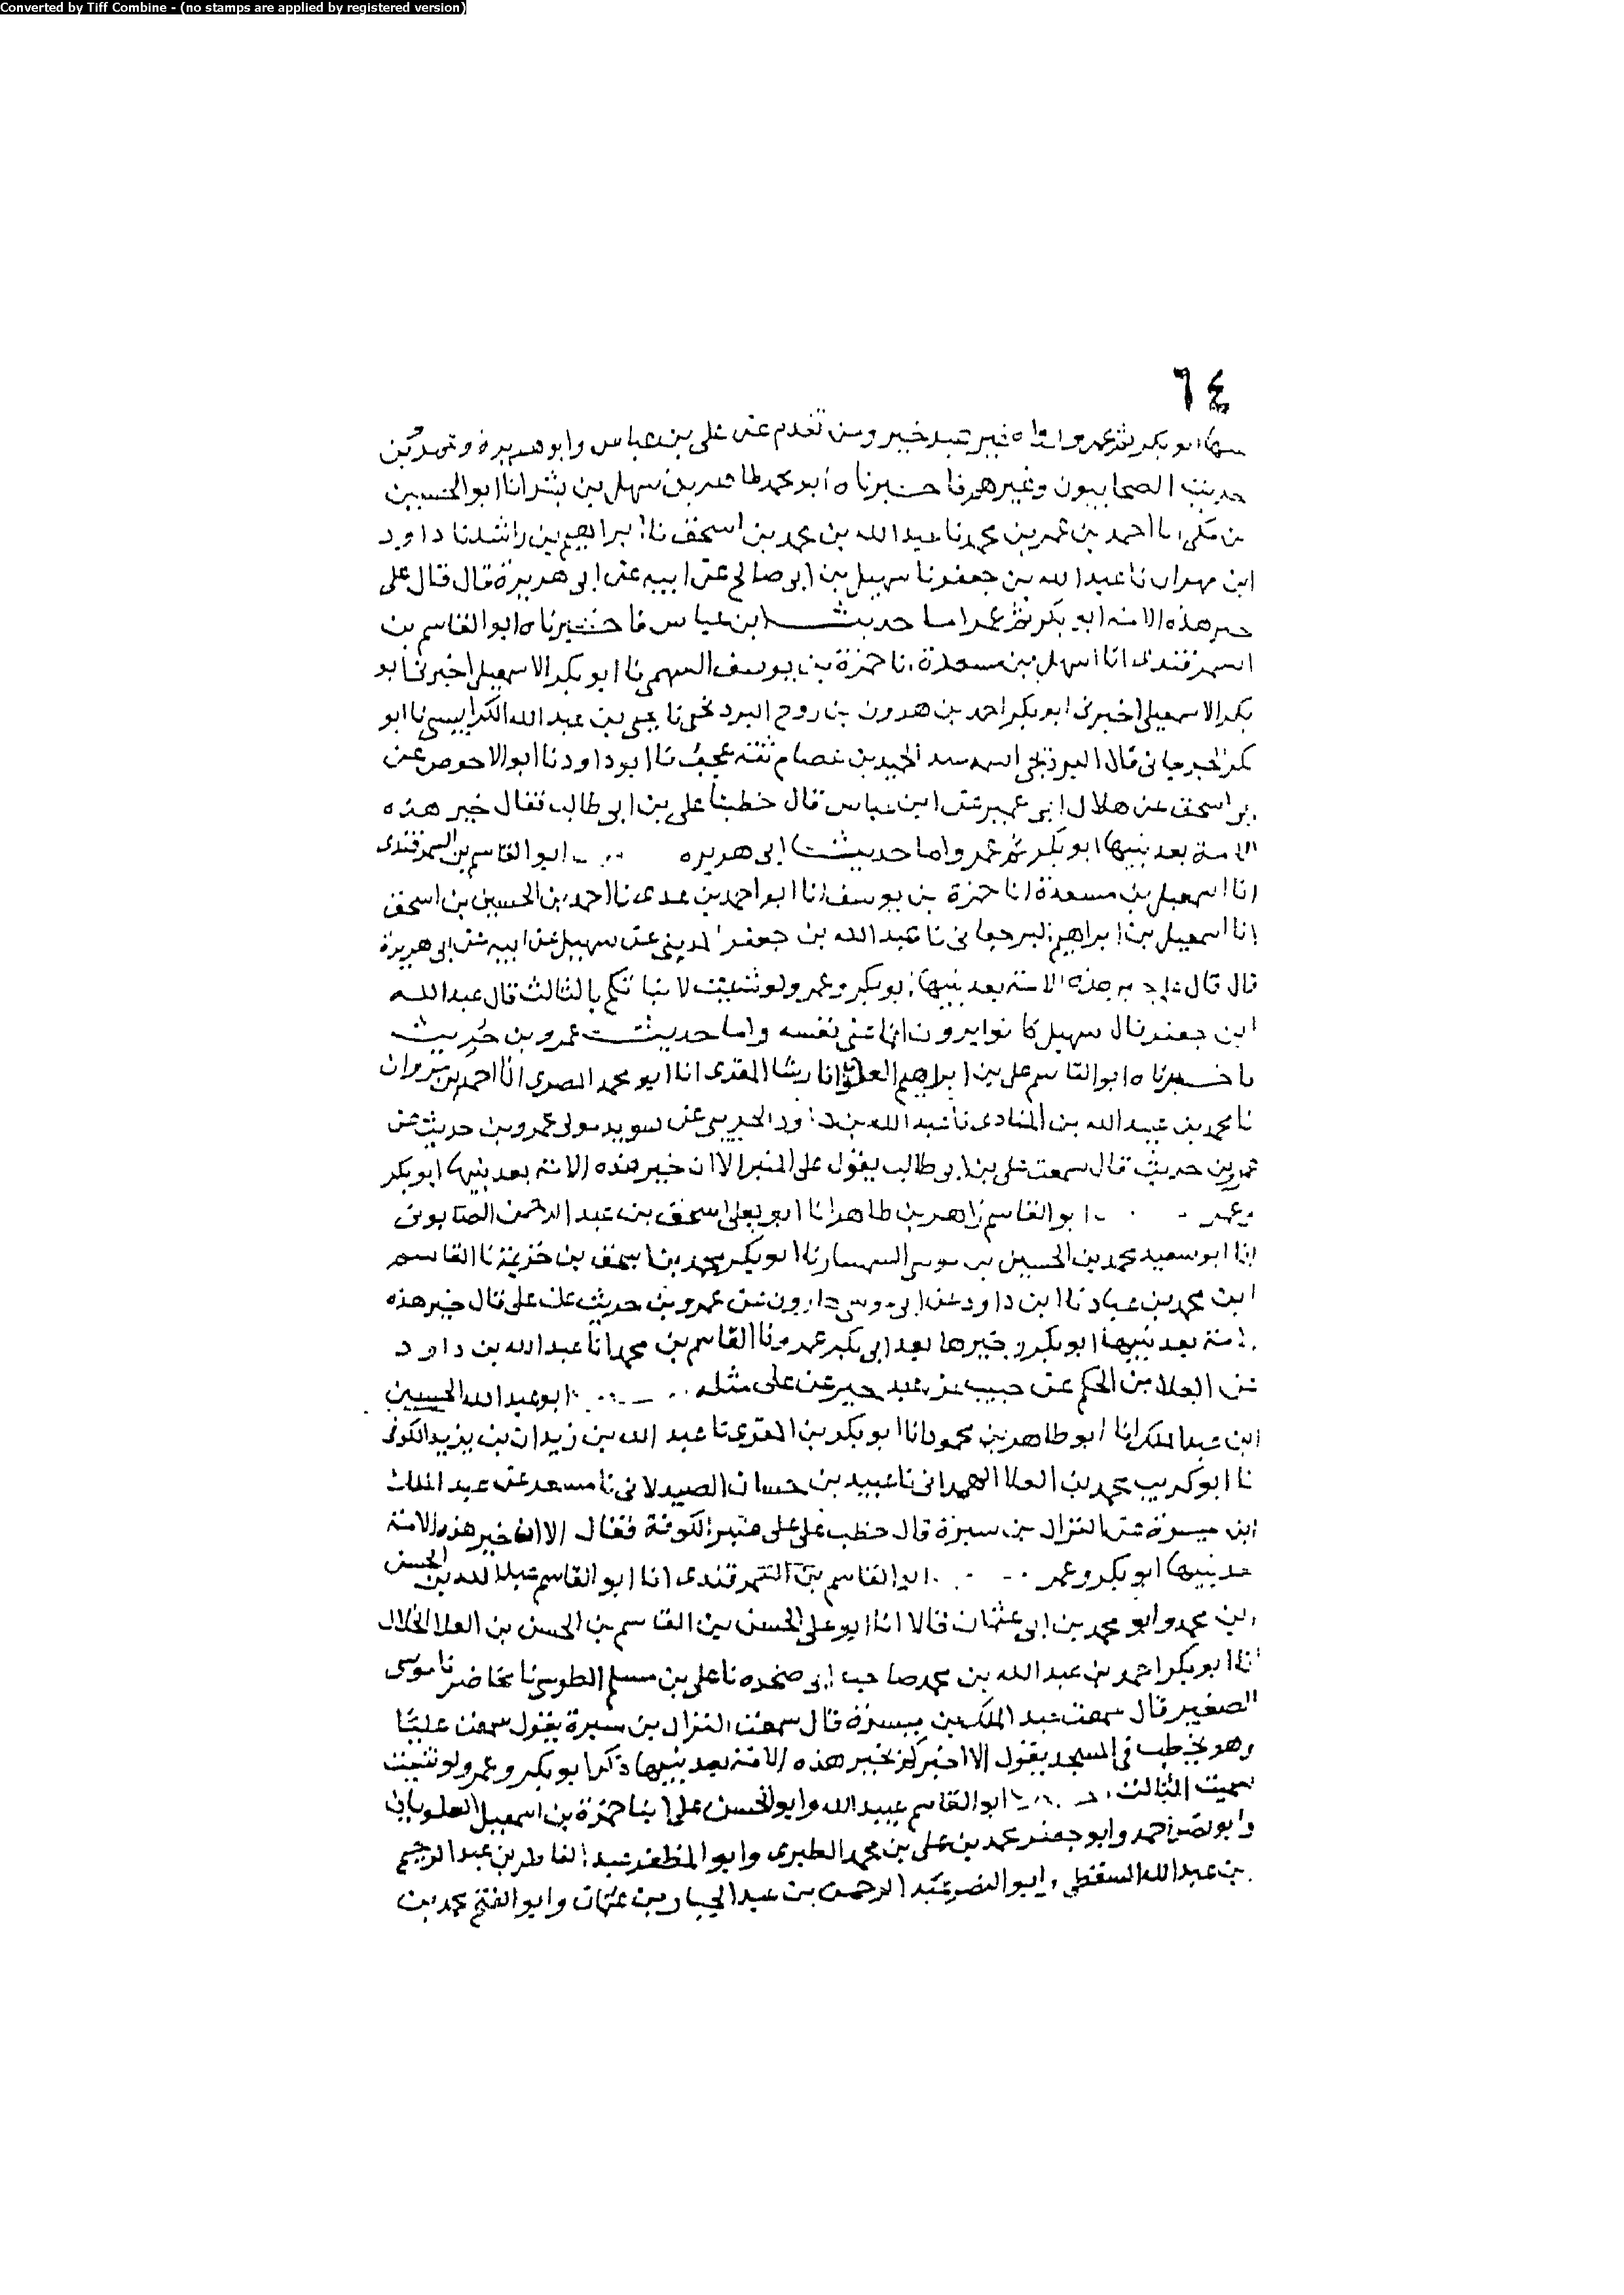 Converted by Tiff Combine - (no stamps are applied by registered version)
٦٤
ابو بكر ثم عمر ورواه غير عبد خير ومن تقدم عن علي بن عباس وابو هريرة وعمرو بن
حديث الصحابيون وغيرهم فاخبرناه ابو محمد طاهر بن سهل بن بشر انا ابو الحسين
بن مكي انا احمد بن عمر بن محمد نا عبد الله بن محمد بن اسحق نا ابراهيم بن راشد نا داود
ابن مهران نا عبد الله بن جعفر نا سهيل بن ابي صالح عن ابيه عن ابي هريرة قال قال علي
خير هذه الامة ابو بكر ثم عمر اما حديث ابن عباس فاخبرناه ابو القاسم بن
السمرقندي انا اسمعيل بن مسعدة انا حمزة بن يوسف السهمي نا ابو بكر الاسمعيلي اخبرني ابو
بكر الاسمعيلي اخبرني ابو بكر احمد بن هرون بن روح البردنجي نا يحيى بن عبد الله الكرابيسي نا ابو
بكر الجرجاني قال البردنجي اسمه عبد الحميد بن عصام ثقة نا ابو داود نا ابو الاحوص عن
ابي اسحق عن هلال ابي عمير عن ابن عباس قال خطبنا علي بن ابي طالب فقال خير هذه
الامة بعد نبيها ابو بكر ثم عمر واما حديث ابي هريره ابو القاسم بن السمرقندي
انا اسمعيل بن مسعدة انا حمزة بن يوسف انا ابو احمد بن عدي نا احمد بن الحسين بن اسحق
انا اسمعيل بن ابراهيم الترجماني نا عبد الله بن جعفر المديني عن سهيل عن ابيه عن ابي هريرة
قال قال علي خير هذه الامة بعد نبيها ابو بكر وعمر ولو شئت لانباتكم بالثالث قال عبد الله
ابن جعفر قال سهيل كانوا يرون انما عنى نفسه واما حديث عمرو بن حريث
فاخبرناه ابو القاسم علي بن ابراهيم العلوي انا رشا المقري انا ابو محمد المصري انا احمد بن مروان
نا محمد بن عبيد الله بن المنادي نا عبد الله بن داود الخريبي عن سويد مولى عمرو بن حريث عن
عمرو بن حريث قال سمعت علي بن ابي طالب يقول على المنبر الا ان خير هذه الامة بعد نبيها ابو بكر
وعمر ابو القاسم زاهر بن طاهر انا ابو يعلى اسحق بن عبد الرحمن الصابوني
انا ابو سعيد محمد بن الحسين بن موسى السمسار نا ابو بكر محمد بن اسحق بن خزيمة نا القاسم
ابن محمد بن عباد نا ابن داود عن ابي موسى هارون عن عمرو بن حريث عن علي قال خير هذه
الامة بعد نبيها ابو بكر وخيرها بعد ابي بكر عمر ونا القاسم بن محمد انا عبد الله بن داود
عن العلا بن الحكم عن حبيب عن عبد خير عن علي مثله ابو عبد الله الحسين
ابن عبد الملك انا ابو طاهر بن محمود انا ابو بكر بن المقري نا عبد الله بن زيدان بن يزيد الكوفي
نا ابو كريب محمد بن العلا الهمداني نا عبيد بن حسان الصيدلاني نا مسعر عن عبد الملك
ابن ميسرة عن النزال بن سبرة قال خطب علي على منبر الكوفة فقال الا ان خير هذه الامة
بعد نبيها ابو بكر وعمر ابو القاسم بن السمرقندي انا ابو القاسم عبد الله بن الحسن
ابن محمد وابو محمد بن ابي عثمان قالا انا ابو علي الحسن بن القاسم بن الحسن بن العلا الخلال
انا ابو بكر احمد بن عبد الله بن محمد صاحب ابي صخره نا علي بن مسلم الطوسي نا محاضر نا موسى
الصغير قال سمعت عبد الملك بن ميسرة قال سمعت النزال بن سبرة يقول سمعت عليًا
وهو يخطب في المسجد يقول الا اخبركم بخير هذه الامة بعد نبيها ذكر ابو بكر وعمر ولو شئت
سميت الثالث ابو القاسم عبيد الله وابو الحسن علي ابنا حمزة بن اسمعيل العلويان
وابو نصر احمد وابو جعفر محمد بن علي بن محمد الطبري وابو المظفر عبد الفاطر بن عبد الرحيم
بن عبد الله السقطي وابو النضر عبد الرحمن بن عبد الجبار بن عثمان وابو الفتح محمد بن